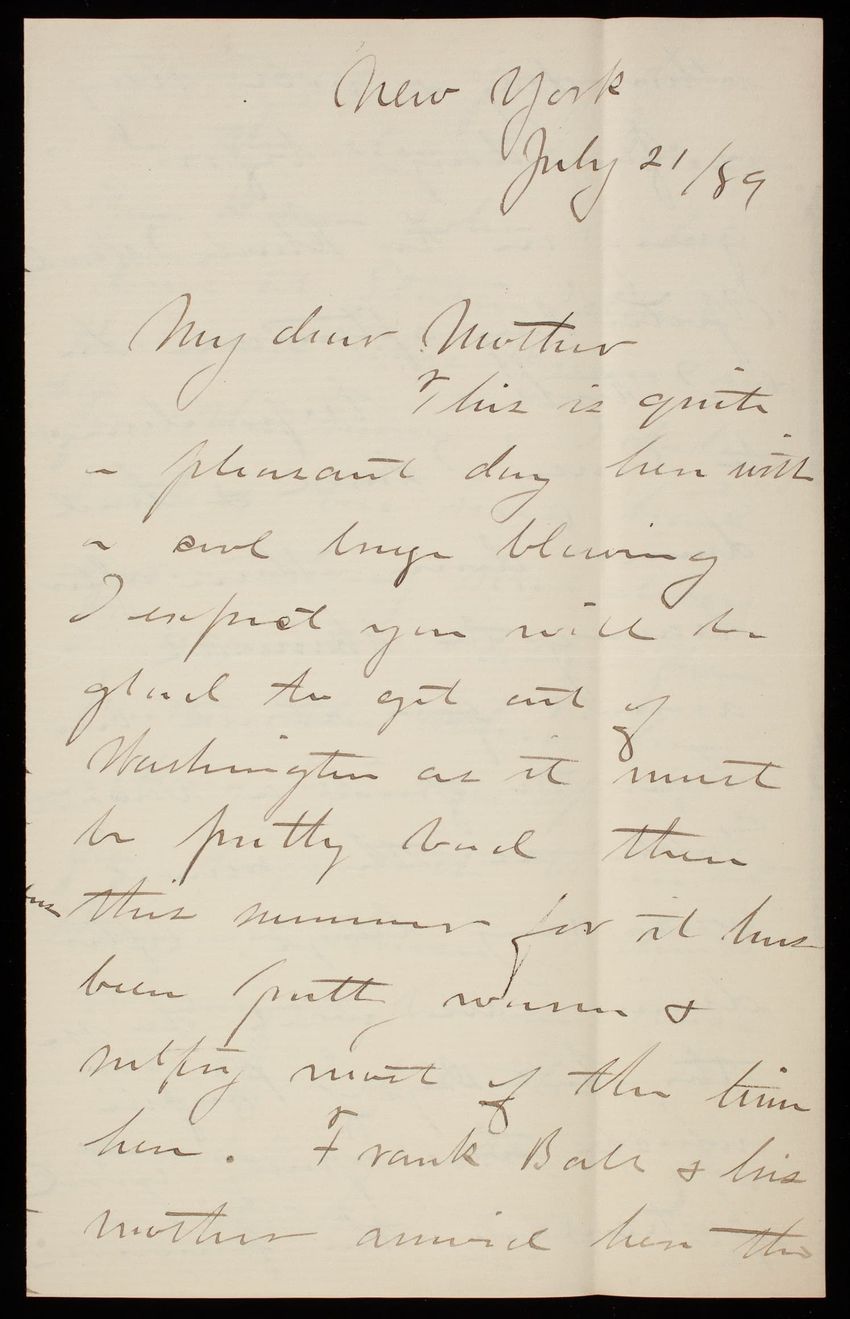 New York
July 21/89
My dear Mother
This is quite
a pleasant day here with
a cool breeze blowing
I expect you will be
glad to get out of
Washington as it must
be pretty bad there
this summer for it has
been pretty warm &
most of the time
here. Frank Ball & his
mother arrived here the